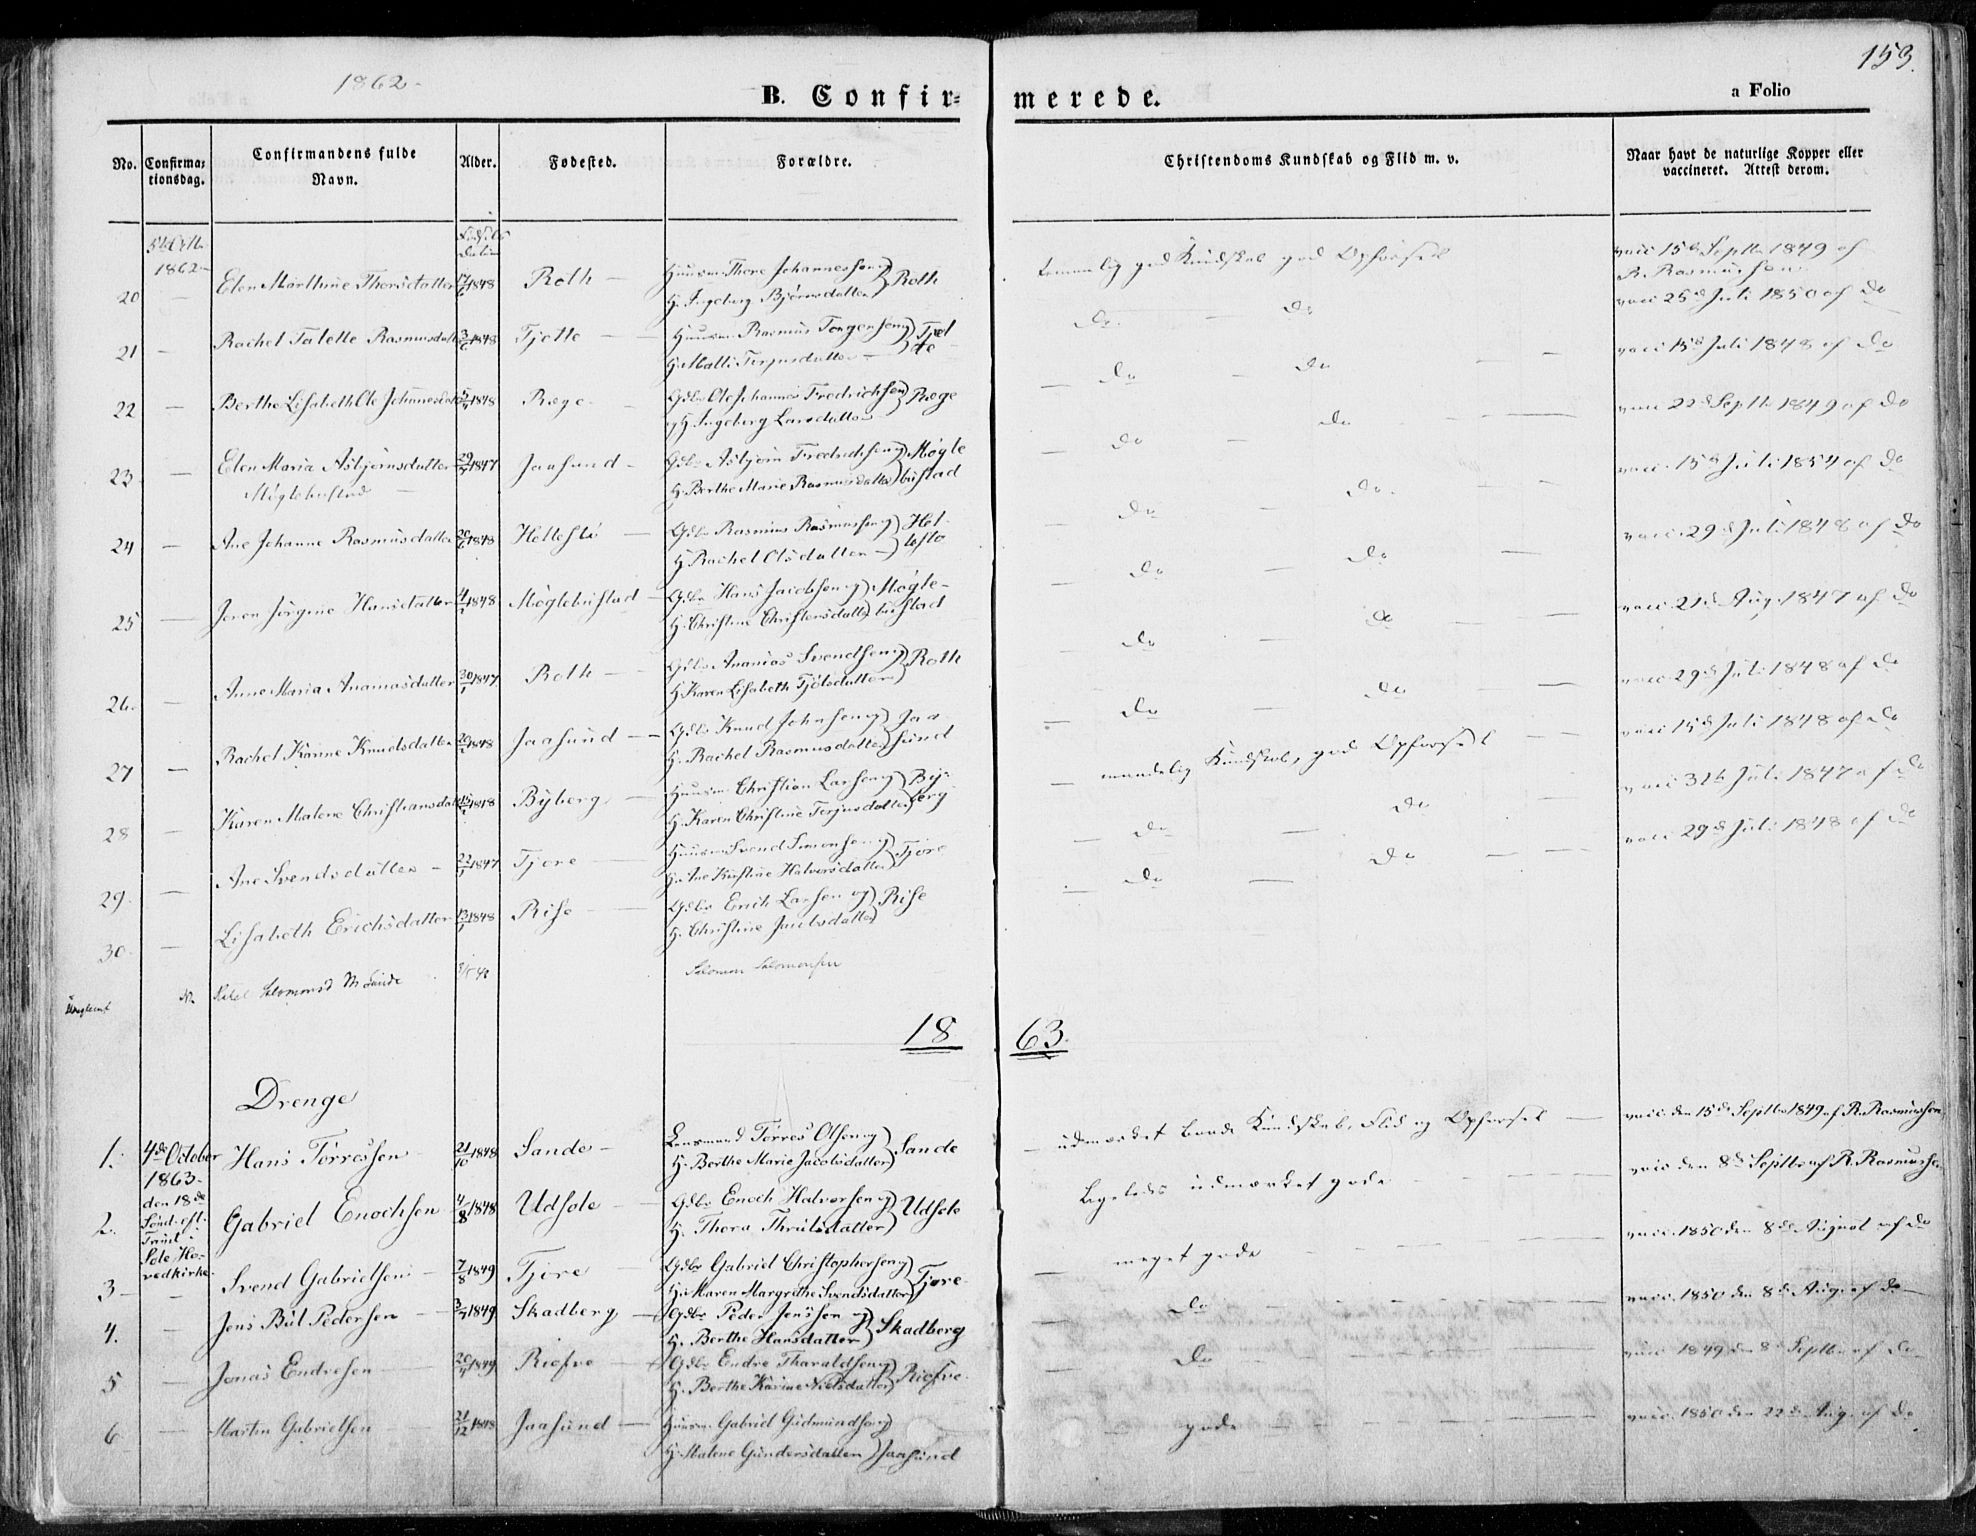 153.
1862.
B. Confir= merede.
a Folio
No. Confirma= tionsdag. Confirmandens fulde Navn. Alder. Fødested. Forældre. Christendoms Kundskab og Flid m. v. Naar havt de naturlige Kopper eller vaccineret. Attest derom.
1862
20 — Elen Marthine Thorsdatter 1848 Roth — Huusm. Thore Johannessen og H. Ingeborg Björnsdatter Roth
temmelig god Kundskab god Opførsel
vacc 15de Septbr 1849 af R. Rasmussen
21 — Rachel Talette Rasmusdatt 1848 Tjotte — Huusm. Rasmus Torgersen og H. Malli Terjusdatter Tjotte
Do — Do
vacc 25de Juli 1850 af Do
22 — Berthe Lisabeth Ole Johannesdatt 1848 Ræge Gdbr Ole Johannes Fredrichsen og H. Ingeborg Larsdatter Ræge
Do — Do
vacc 15de Juli 1848 af Do
23 — Elen Maria Asbjørnsdatter Møglebustad 29 1847 Jaasund Gdbr Asbjørn Fredrichsen og H. Berthe Marie Rasmusdatter Møglebustad
Do — Do
vacc 22de Septbr 1849 af Do
24 — Ane Johanne Rasmusdatter 1848 Hellestö — Gdbr Rasmus Rasmussen og H. Rachel Olsdatter
Do — Do
vacc. 15de Juli 1854 af Do
25 — Joren Jørgine Hansdatter 1848 Møglebustad Gdbr Hans Jacobsen og H. Christine Christensdatter Møglebustad
Do — Do
vacc. 29de Juli 1848 af Do
26. — Anne Maria Ananiasdatter 30 1847 Roth — Gdbr Ananias Svendsen og H. Karen Lisabeth Tjölsdatter Roth
Do — Do
vacc. 21de Aug. 1847 af Do
27 — Rachel Karine Knudsdatter 1848 Jaasund — Gdbr Knud Johnsen og H. Rachel Rasmusdatter Jaasund
Do — Do
vacc 29de Juli 1848 af Do
28 — Karen Malene Christiansdatt 1848 Byberg — Huusm. Christian Larsen og H. Karen Christine Terjusdatter Byberg
Kundskab, god Opførsel
vacc 15de Juli 1848 af Do
29. — Ane Svendsdatter — 1847 Tjore — Huusm Svend Simonsen og H. Ane Kirstine Halvorsdatter Tjore
Do — Do
vacc 31te Juli 1847 af Do
30 — Lisabeth Erichsdatter 13 1848 Rise — Gdbr Erich Larsen og H. Christine Jacobsdatter Rise
Do — Do
vacc 29de Juli 1848 af Do
Salomonsd Salomon Salomonsen
18 63.
Drenge
1. 4de October 1863. den 18de Sönd. eft. Trinit i Sole Hovedkirke. Hans Törressen 21/10 1848 Sande — Lensmand Törres Olsen og H. Berthe Marie Jacobsdatter Sande
udmærket baade Kundskab, Flid og Opførsel —
vacc. den 15de Septbr 1849 af R. Rasmussen
2. Gabriel Enochsen 4/8 1848 Udsole — Gdbr Enoch Halvorsen og H. Thora Thrulsdatter Udsole
ligeledes udmærket gode
vacc den 8de Septbr af R. Rasmussen
3 — Svend Gabrielsen — 7/8 1849 Tjore Gdbr Gabriel Christophersen og H. Maren Margrethe Svendsdatter Tjore
meget gode
vacc. 1850 den 8de August af Do
4. — Jens Bül Pedersen 1849 Skadberg — Gdbr Peder Jenssen og H. Berthe Hansdatter Skadberg
Do
vacc. 1850 den 8de Aug. af Do
5 — Jonas Endresen 20 1849 Riefve — Gdbr Endre Tharaldsen og H. Berthe Karine Nielsdatter Riefve.
Do
vacc 1849 den 8de Septbr af Do
6 — Martin Gabrielsen 21/12 1848 Jaasund — Huusm Gabriel Gudmundsen og H. Malene Gundersdatter Jaasund
gode
vacc. 1850 den 22de Aug. af Do